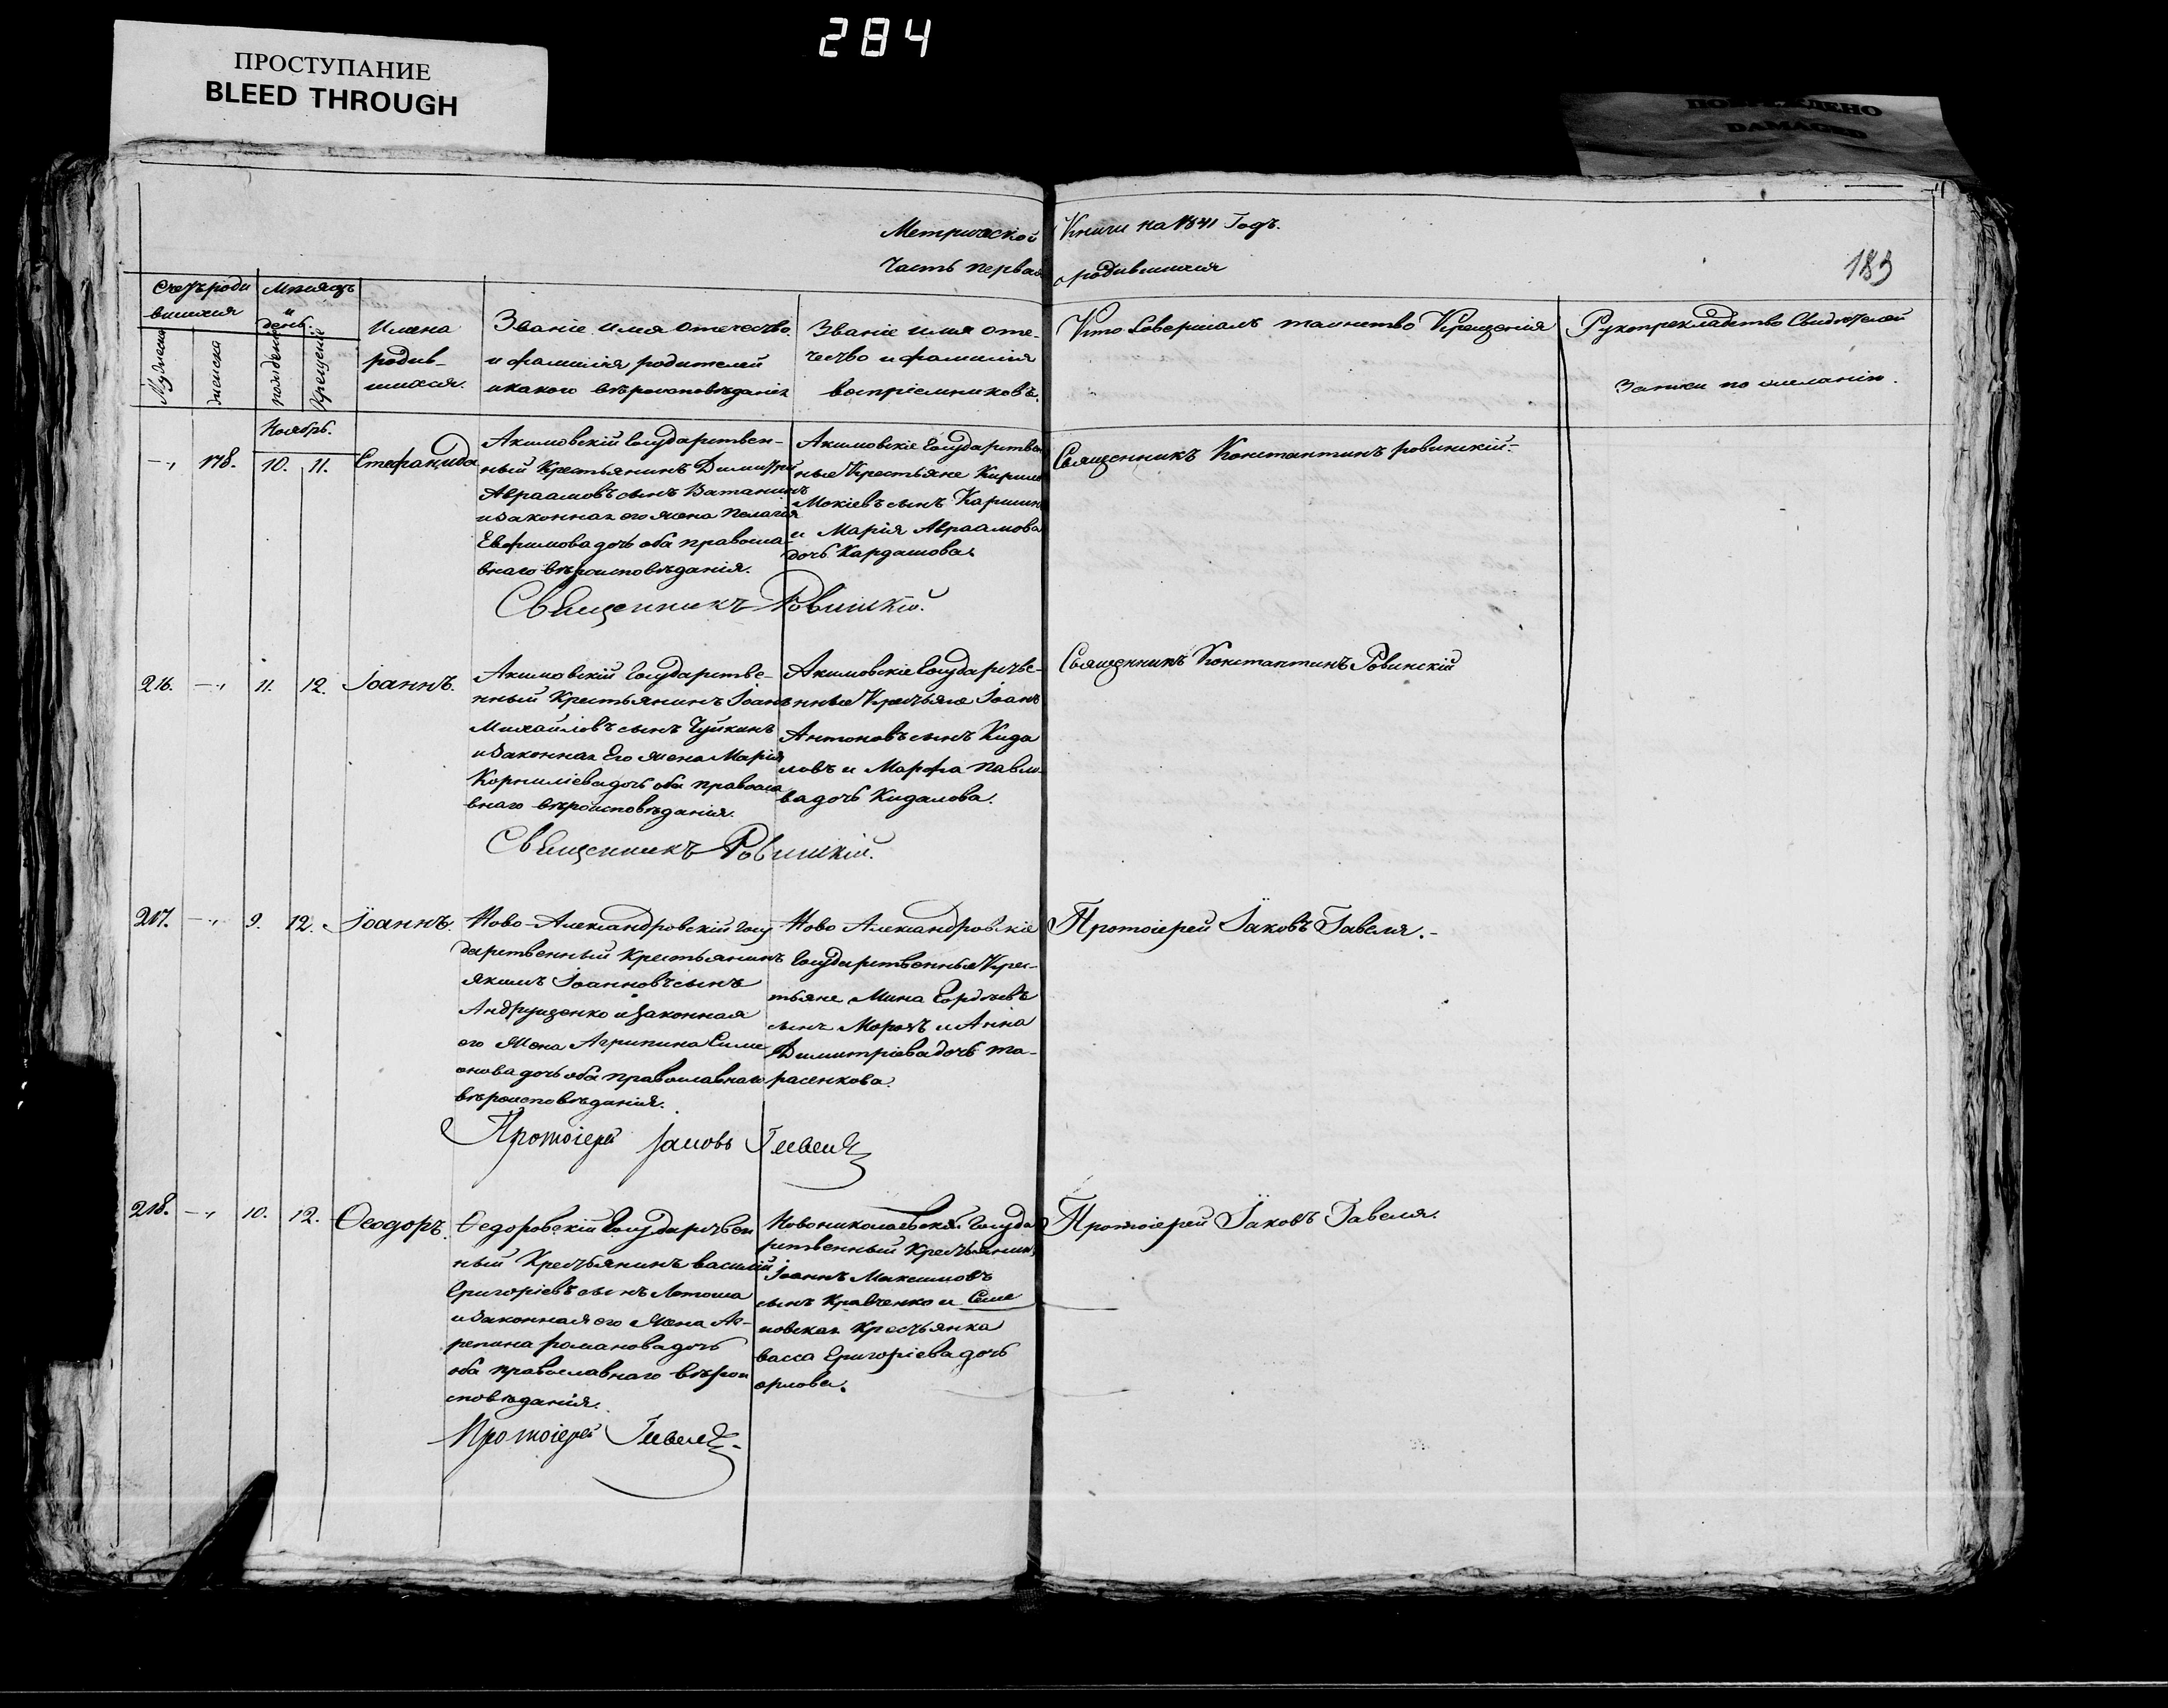 284
ПРОСТУПАНИЕ
BLEED THROUGH
ПОВРЕЖДЕНО
DAMAGED
Метрической Книги на 1841 Годъ.
Часть первая о родившихся
183
Счетъ роди
вшихся
Мѣсяцъ
и
день.
Мужеска
женска
рожденія
Крещенія
Имена
родив-
шихся.
Званіе имя отечество
и фамилія родителей
и какого вѣроисповѣданія
Званіе имя оте-
чество и фамилія
воспріемниковъ.
Кто Совершалъ таинство Крещенія
Рукоприкладство Свидѣтелей
Записи по желанію.
Ноябрь.
178. 10. 11. Стефанида
Акимовскій Государствен-
ный Крестьянинъ Димитрій
Авраамовъ сынъ Ватанинъ
и законная его жена Пелагія
Евфимова дочь оба правосла-
внаго вѣроисповѣданія.
Акимовскіе Государствен
ные Крестьяне Кирилъ
Мокіевъ сынъ
и Марія Авраамова
дочь Кардашова.
Священникъ Константинъ ровинскій.-
Священникъ Ровинскій.
216. 11. 12. Іоаннъ.
Акимовскій Государстве-
нный Крестьянинъ Іоанъ
Михайловъ сынъ Чуйкинъ
и законная Его жена Марія
Корниліева дочь оба правосла
внаго вѣроисповѣданія.
Акимовскіе Государстве-
нные Крестьяне Іоанъ
Антоновъ сынъ Кида
ловъ и Марфа Павло-
ва дочь Кидалова.
Священникъ Константинъ Ровинскій
Священникъ Ровинскій.
217. 9. 12. Іоаннъ.
Ново-Александровскій госу
дарственный крестьянинъ
якимъ Іоанновъ сынъ
Андрущенко и законная
его жена Агрипина Симе
онова дочь оба православнаго
вѣроисповѣданія.
Ново Александровскіе
Государственные Крес-
тьяне Мина Гордѣевъ
сынъ Морозъ и Анна
Димитріева дочь та-
расенкова.
Протоіерей Іаковъ Гавеля.-
Протоіерей Іаковъ Гавеля
218. 10. 12. Ѳеодоръ.
Ѳедоровскій Государствен
ный Крестьянинъ василій
Григоріевъ сынъ Летоша
и законная его жена Аг-
репина романова дочь
оба православнаго вѣрои
сповѣданія.
Новониколаевской Госуда
рственный Крестьянинъ
Іоаннъ Максимовъ
сынъ кравченко и Семе
новская крестьянка
васса Григоріева дочь
орлова.
Протоіерей Іаковъ Гавеля.
Протоіерей Гавеля.